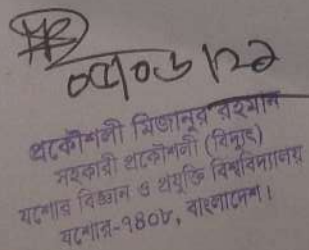 ০৫/০৬/২২
প্রকৌশলী মিজানুর রহমান
সহকারী প্রকৌশলী (বিদ্যুৎ)
যশোর বিজ্ঞান ও প্রযুক্তি বিশ্ববিদ্যালয়
যশোর-৭৪০৮, বাংলাদেশ।